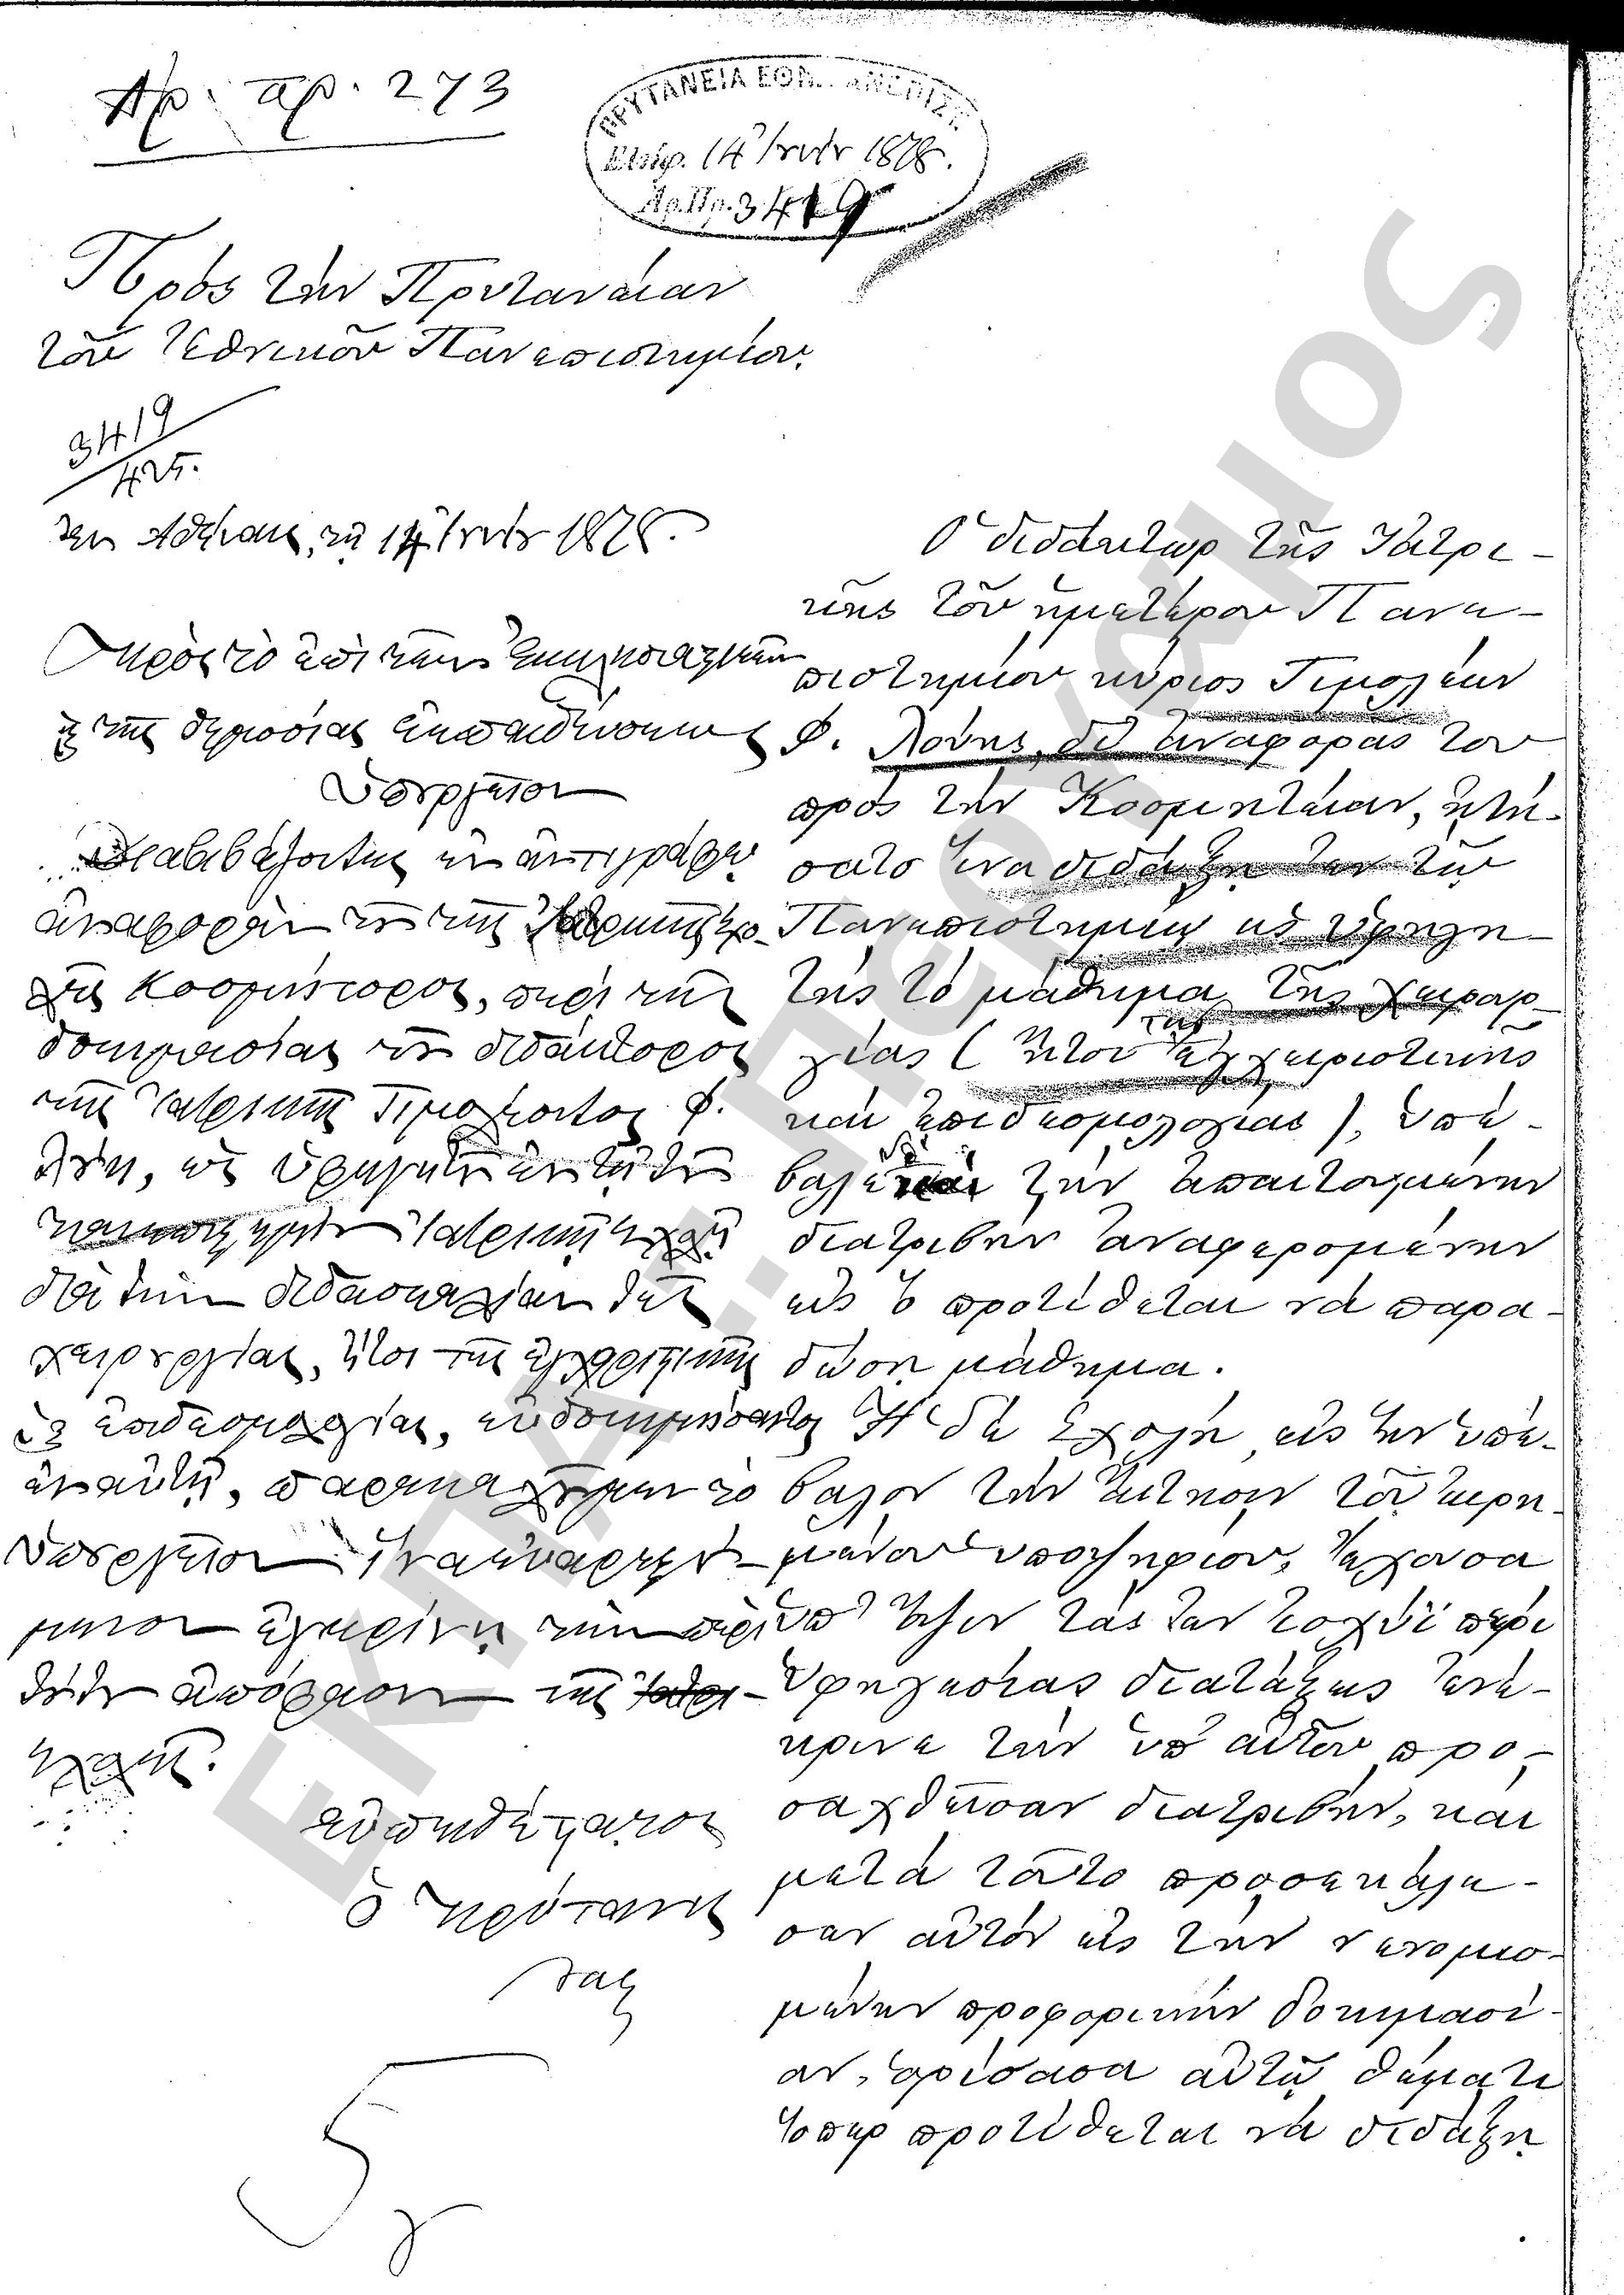 Αρ. πρ. 273
ΠΡΥΤΑΝΕΙΑ ΕΘΝ. ΠΑΝΕΠΙΣΤ.
Ελήφ. 14 Ιουν 1878.
Αρ. Πρ. 3419
Πρὸς τὴν Πρυτανείαν
τοῦ Ἐθνικοῦ Πανεπιστημίου.
3419
425.
Ἐν Ἀθήναις, τῇ 14 Ἰουν 1878.
Πρὸς τὸ ἐπὶ τῶν Ἐκκλησιαστικῶν
καὶ τῆς δημοσίας ἐκπαιδεύσεως
Ὑπουργεῖον
Διαβιβάζοντες ἐν ἀντιγράφῳ
ἀναφορὰν τοῦ τῆς Ἰατρικῆς Σχο-
λῆς Κοσμήτορος, περὶ τῆς
δοκιμασίας τοῦ διδάκτορος
τῆς Ἰατρικῆς Τιμολέοντος Φ.
Λούη, ὡς ὑφηγητοῦ ἐν τῇ τοῦ
Πανεπιστημίου Ἰατρικῇ Σχολῇ
διὰ τὴν διδασκαλίαν τῆς
χειρουργίας, ἤτοι τῆς ἐγχειριστικῆς
καὶ ἐπιδεσμολογίας, εὐδοκιμήσαντος
ἐν αὐτῇ, παρακαλοῦμεν τὸ
Ὑπουργεῖον ἵνα εὐαρεστού-
μενον ἐγκρίνῃ τὴν περὶ
τούτου ἀπόφασιν τῆς
Σχολῆς.
εὐπειθέστατος
Ὁ Πρύτανις
Ὁ διδάκτωρ τῆς Ἰατρι-
κῆς τοῦ ἡμετέρου Πανε-
πιστημίου κύριος Τιμολέων
Φ. Λούης, δι' ἀναφορᾶς του
πρὸς τὴν Κοσμητείαν, ᾐτή-
σατο ἵνα διδάξῃ ἐν τῷ
Πανεπιστημίῳ ὡς ὑφηγη-
τὴς τὸ μάθημα τῆς χειρουρ-
γίας (ἤτοι τῆς ἐγχειριστικῆς
καὶ ἐπιδεσμολογίας), ὑπέ-
βαλε δὲ τὴν ἀπαιτουμένην
διατριβὴν ἀναφερομένην
εἰς ὃ προτίθεται νὰ παρα-
δώσῃ μάθημα.
Ἡ δὲ Σχολὴ εἰς ἣν ὑπέ-
βαλον τὴν αἴτησιν τοῦ εἰρη-
μένου ὑποψηφίου, ἔχουσα
ὑπ' ὄψιν τὰς ἐν ἰσχύϊ περὶ
ὑφηγεσίας διατάξεις ἐνέ-
κρινε τὴν ὑπ' αὐτοῦ προ-
σαχθεῖσαν διατριβὴν, καὶ
μετὰ τοῦτο προσεκάλε-
σεν αὐτὸν εἰς τὴν νενομισ-
μένην προφορικὴν δοκιμασί-
αν, ὁρίσασα αὐτῷ θέματα
ὅπερ προτίθεται νὰ διδάξῃ